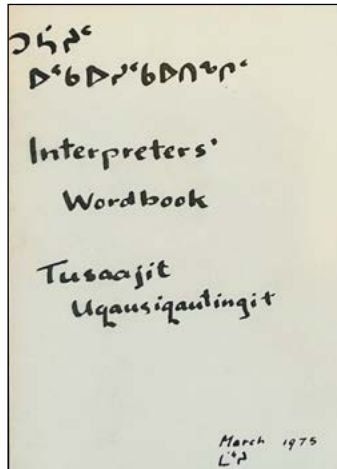 ᑐᓵᔨᑦ
ᐅᖃᐅᓯᖃᐅᑎᖏᑦ
Interpreters'
Wordbook
Tusaajit
Uqausiqautingit
March 1975